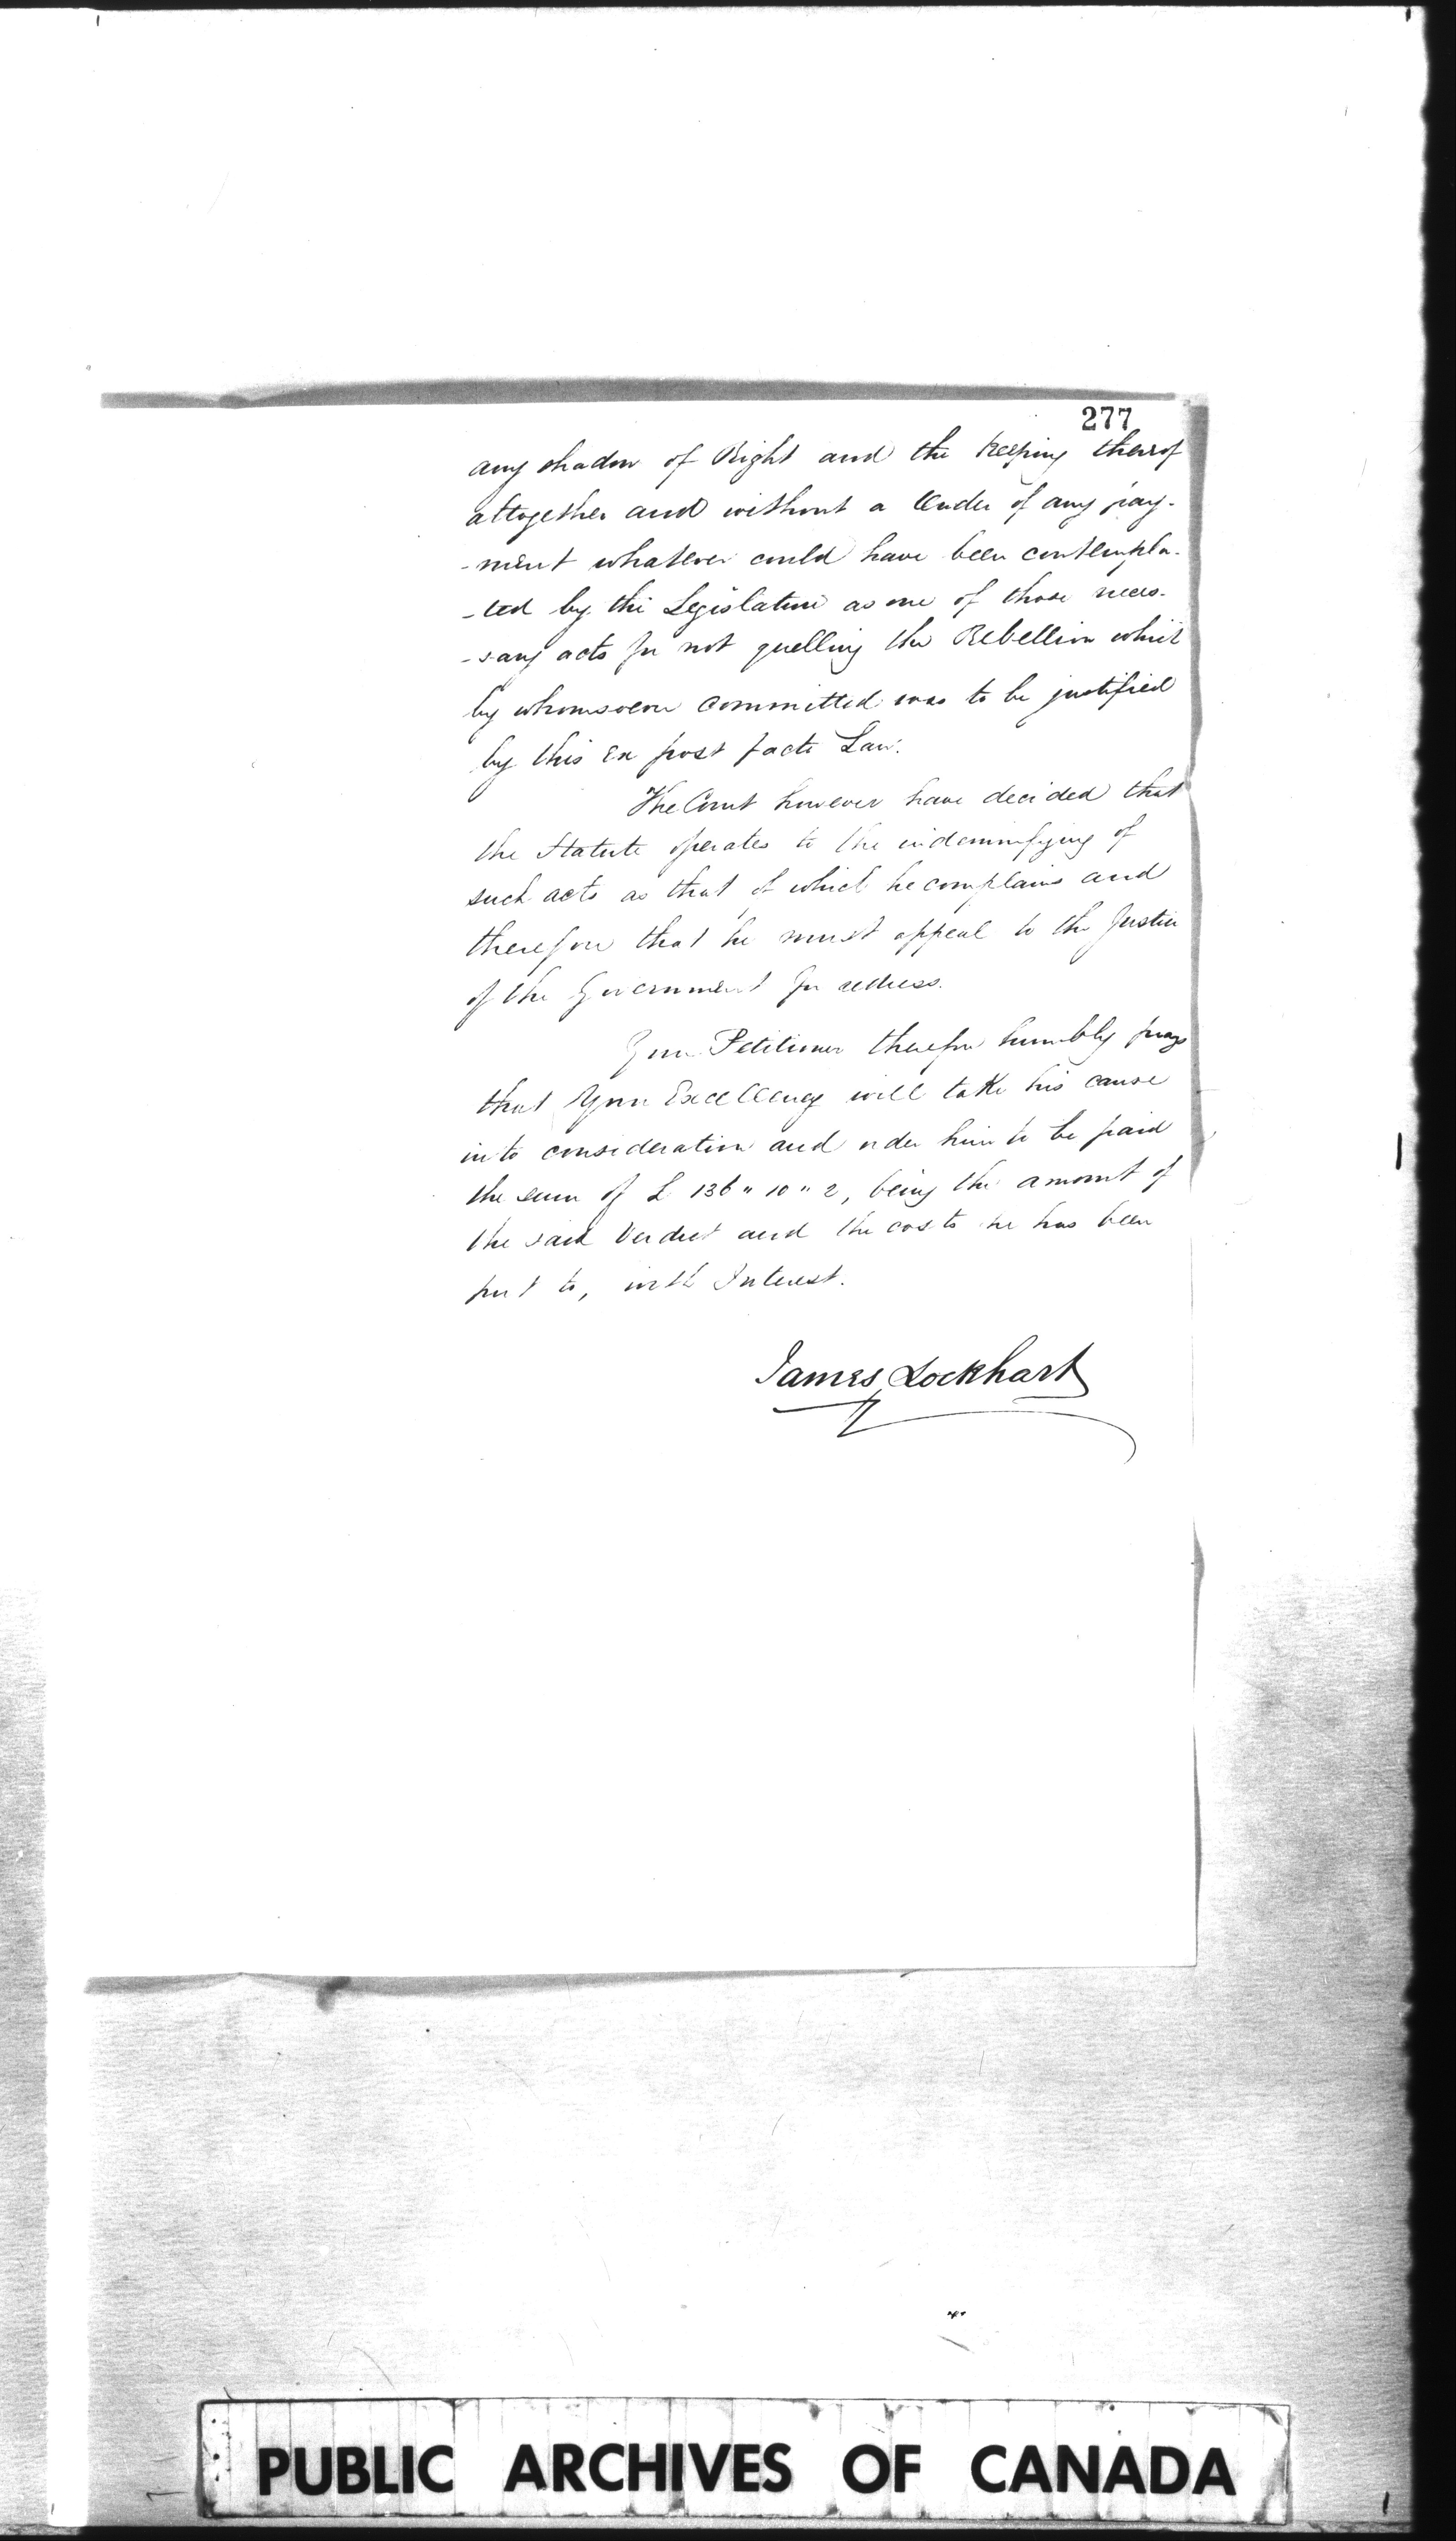 277
any shadow of Right and the keeping thereof
altogether and without a tender of any pay-
-ment whatever could have been contempla-
-ted by the Legislature as one of those neces-
-sary acts for not quelling the Rebellion which
by whomsoever committed was to be justified
by this ex post facto Law.
The Court however have decided that
the Statute operates to the indemnifying of
such acts as that of which he complains and
therefore that he must appeal to the Justice
of the Government for redress.
Your Petitioner therefore humbly prays
that Your Excellency will take his cause
into consideration and order him to be paid
the sum of £ 136 " 10 " 2, being the amount of
the said Verdict and the costs he has been
put to, with Interest.
James Lockhart
PUBLIC ARCHIVES OF CANADA